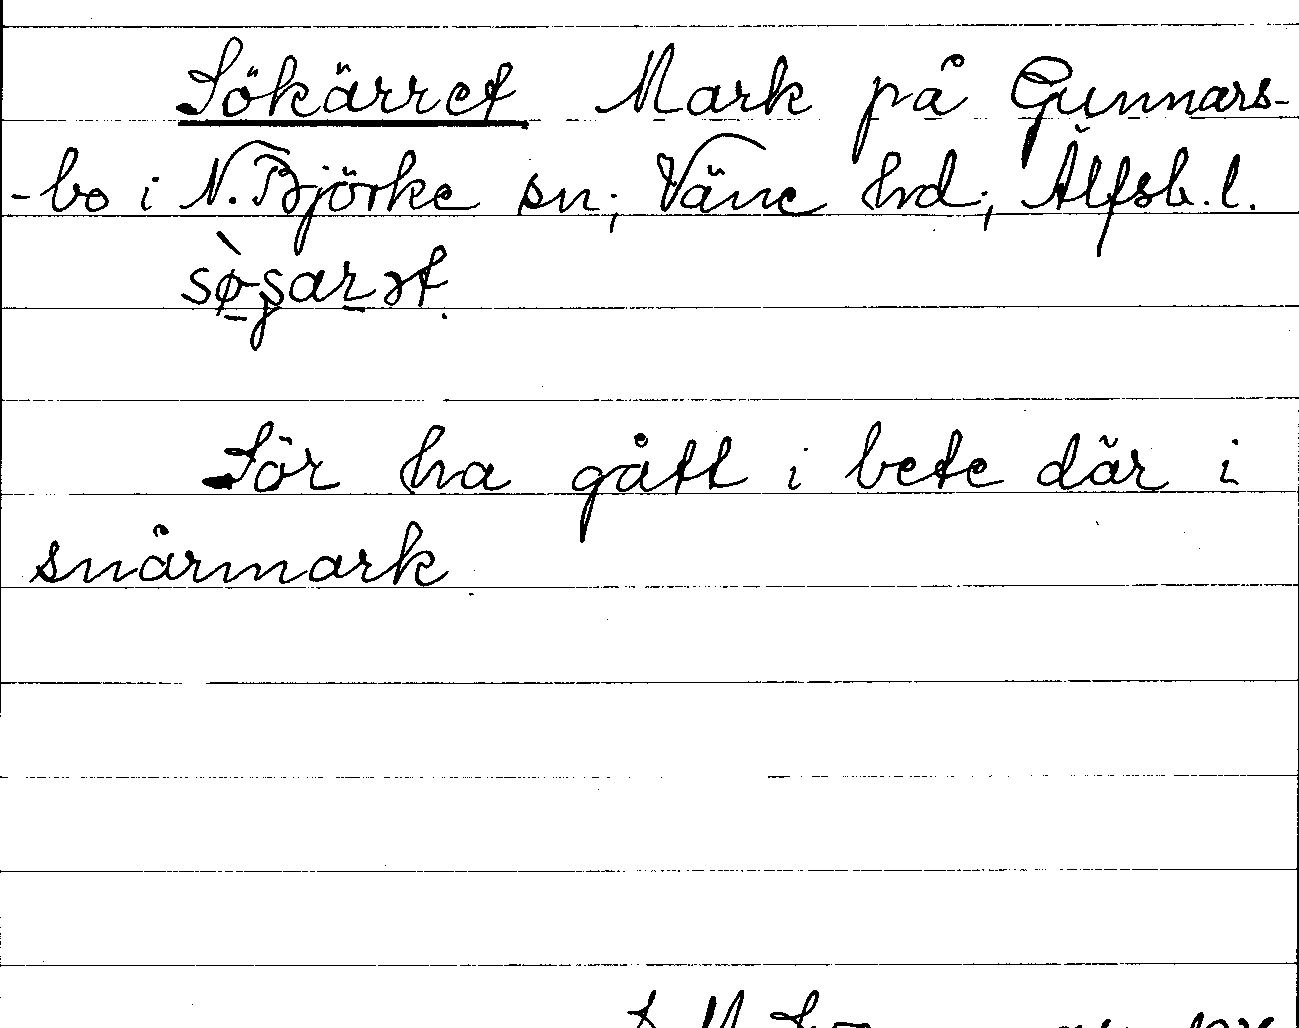 Sökärret Mark på Gunnars-
-bo i N. Björke sn; Väne hd; Älfsb. l.
Sör ha gått i bete där i
snårmark